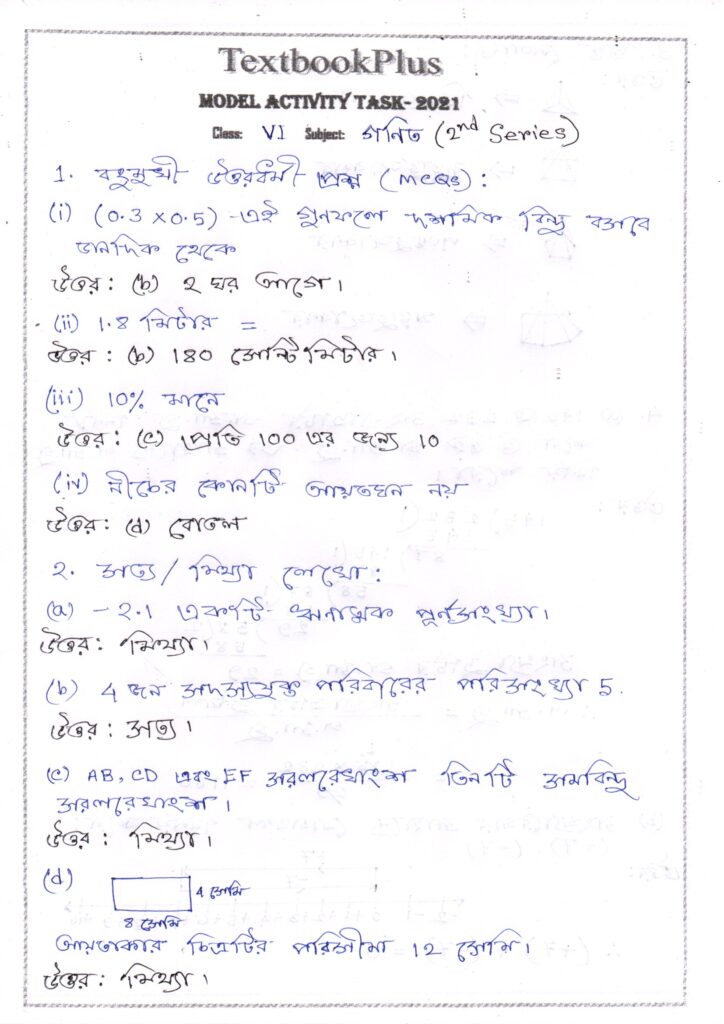 TextbookPlus
MODEL ACTIVITY TASK- 2021
Class: VI Subject: গণিত (2nd Series)
1. বহুমুখী উত্তরধর্মী প্রশ্ন (MCQs) :
(i) (0.3 × 0.5) -এই গুনফলে দশমিক বিন্দু বসাবে
ডানদিক থেকে
উত্তর : (b) ২ ঘর আগে।
(ii) 1.8 মিটার =
উত্তর : (b) 180 সেন্টিমিটার।
(iii) 10% মানে
উত্তর : (c) প্রতি 100 এর জন্য 10
(iv) নীচের কোনটি আয়তঘন নয়
উত্তর: (d) বোতল
২. সত্য / মিথ্যা লেখো :
(a) -২.1 একটি ঋনাত্মক পূর্নসংখ্যা।
উত্তর: মিথ্যা।
(b) 4 জন সদস্যযুক্ত পরিবারের পরিসংখ্যা 5.
উত্তর : সত্য।
(c) AB, CD এবং EF সরলরেখাংশ তিনটি সমবিন্দু
সরলরেখাংশ।
উত্তর : মিথ্যা।
(d)
4 সেমি
8 সেমি
আয়তাকার চিত্রটির পরিসীমা 12 সেমি।
উত্তর: মিথ্যা।